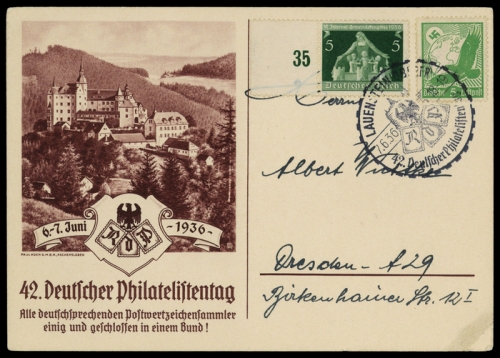 6.-7. Juni
-1936-
R d P
PAUL KOCH G.M.B.H., ASCHERSLEBEN
42. Deutscher Philatelistentag
Alle deutschsprechenden Postwertzeichensammler
einig und geschlossen in einem Bund!
35
5 5
Deutsches Reich
Deutsche 5 Luftpost
LAUENSTEIN
7.6.36
42. Deutscher Philatelisten
Herrn
Albert
Dresden-A29
Birkenhainer Str. 12 I